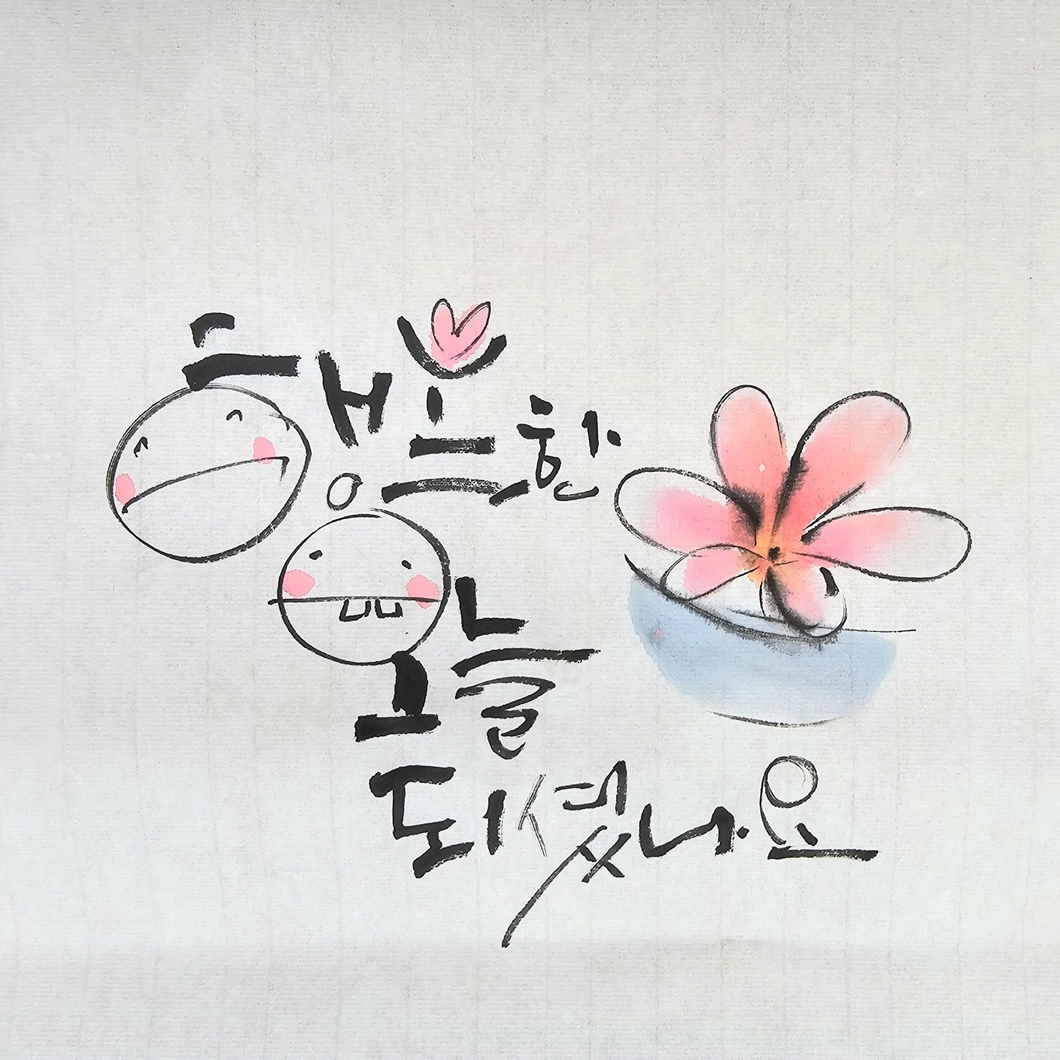 행복한
오늘
되셨나요